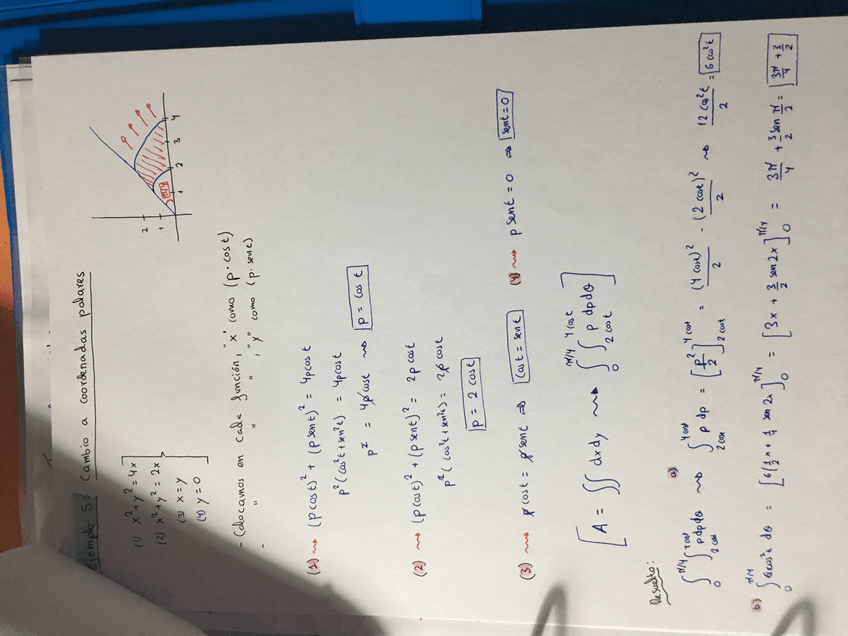 Ejemplo 5. Cambio a coordenadas polares
(1) x²+y²=4x
(2) x²+y²=2x
(3) x=y
(4) y=0
2
1
1 2 3 4
- Colocamos en cada función, "x" como (p·cos t)
- " " " ", "y" como (p·sen t)
(1) ⇝ (p cos t)² + (p sen t)² = 4p cos t
p² (cos² t + sen² t) = 4p cos t
p² = 4p cos t ⇝ p = cos t
(2) ⇝ (p cos t)² + (p sen t)² = 2p cos t
p² (cos² t + sen² t) = 2p cos t
p = 2 cos t
(3) ⇝ p cos t = p sen t ⇒ cos t = sen t
(4) ⇝ p sen t = 0 ⇒ sen t = 0
[A = ∫∫ dx dy ⇝ ∫₀^{π/4} ∫_{2 cos t}^{4 cos t} p dp dθ]
Resuelto:
∫₀^{π/4} ∫_{2 cos t}^{4 cos t} p dp dθ ⇝ a) ∫_{2 cos t}^{4 cos t} p dp = [p²/2]_{2 cos t}^{4 cos t} = (4 cos t)²/2 - (2 cos t)²/2 ⇝ 12 cos² t/2 = 6 cos² t
b) ∫₀^{π/4} 6 cos² t dθ = [6(½x + ¼ sen 2x)]₀^{π/4} = [3x + 3/2 sen 2x]₀^{π/4} = 3π/4 + 3/2 sen π/2 = 3π/4 + 3/2